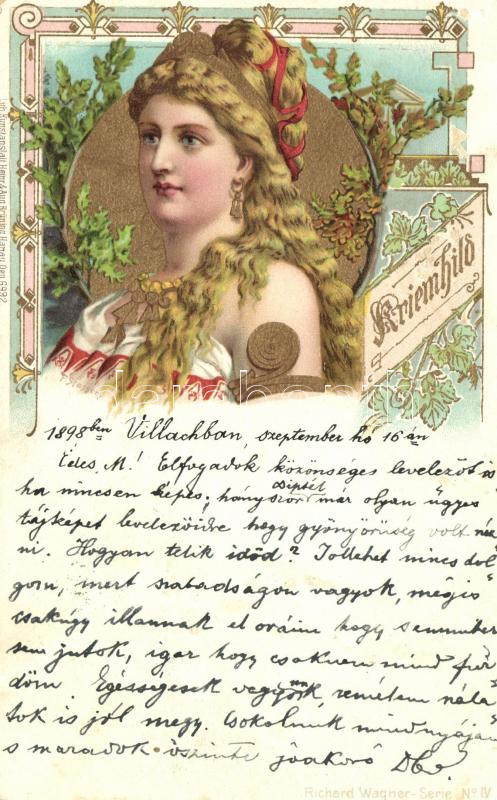 Kriemhild
1898ben Villachban, szeptember hó 16-án
Édes M! Elfogadok közönséges levelezőt is
ha nincsen képes; hányszor csiptél már olyan ügyes
tájképet levelezőidre hogy gyönyörűség volt néz
ni. Hogyan telik időd? Jóllehet nincs dol
gom, mert szabadságon vagyok, mégis
csakúgy illannak el óráim hogy semmihez
sem jutok, igaz hogy csaknem mind für
döm. Egészségesek vagyunk, remélem nála
tok is jól megy. Csókolunk mindnyáján
s maradok őszinte jóakaró
Richard Wagner-Serie No IV
darabanth